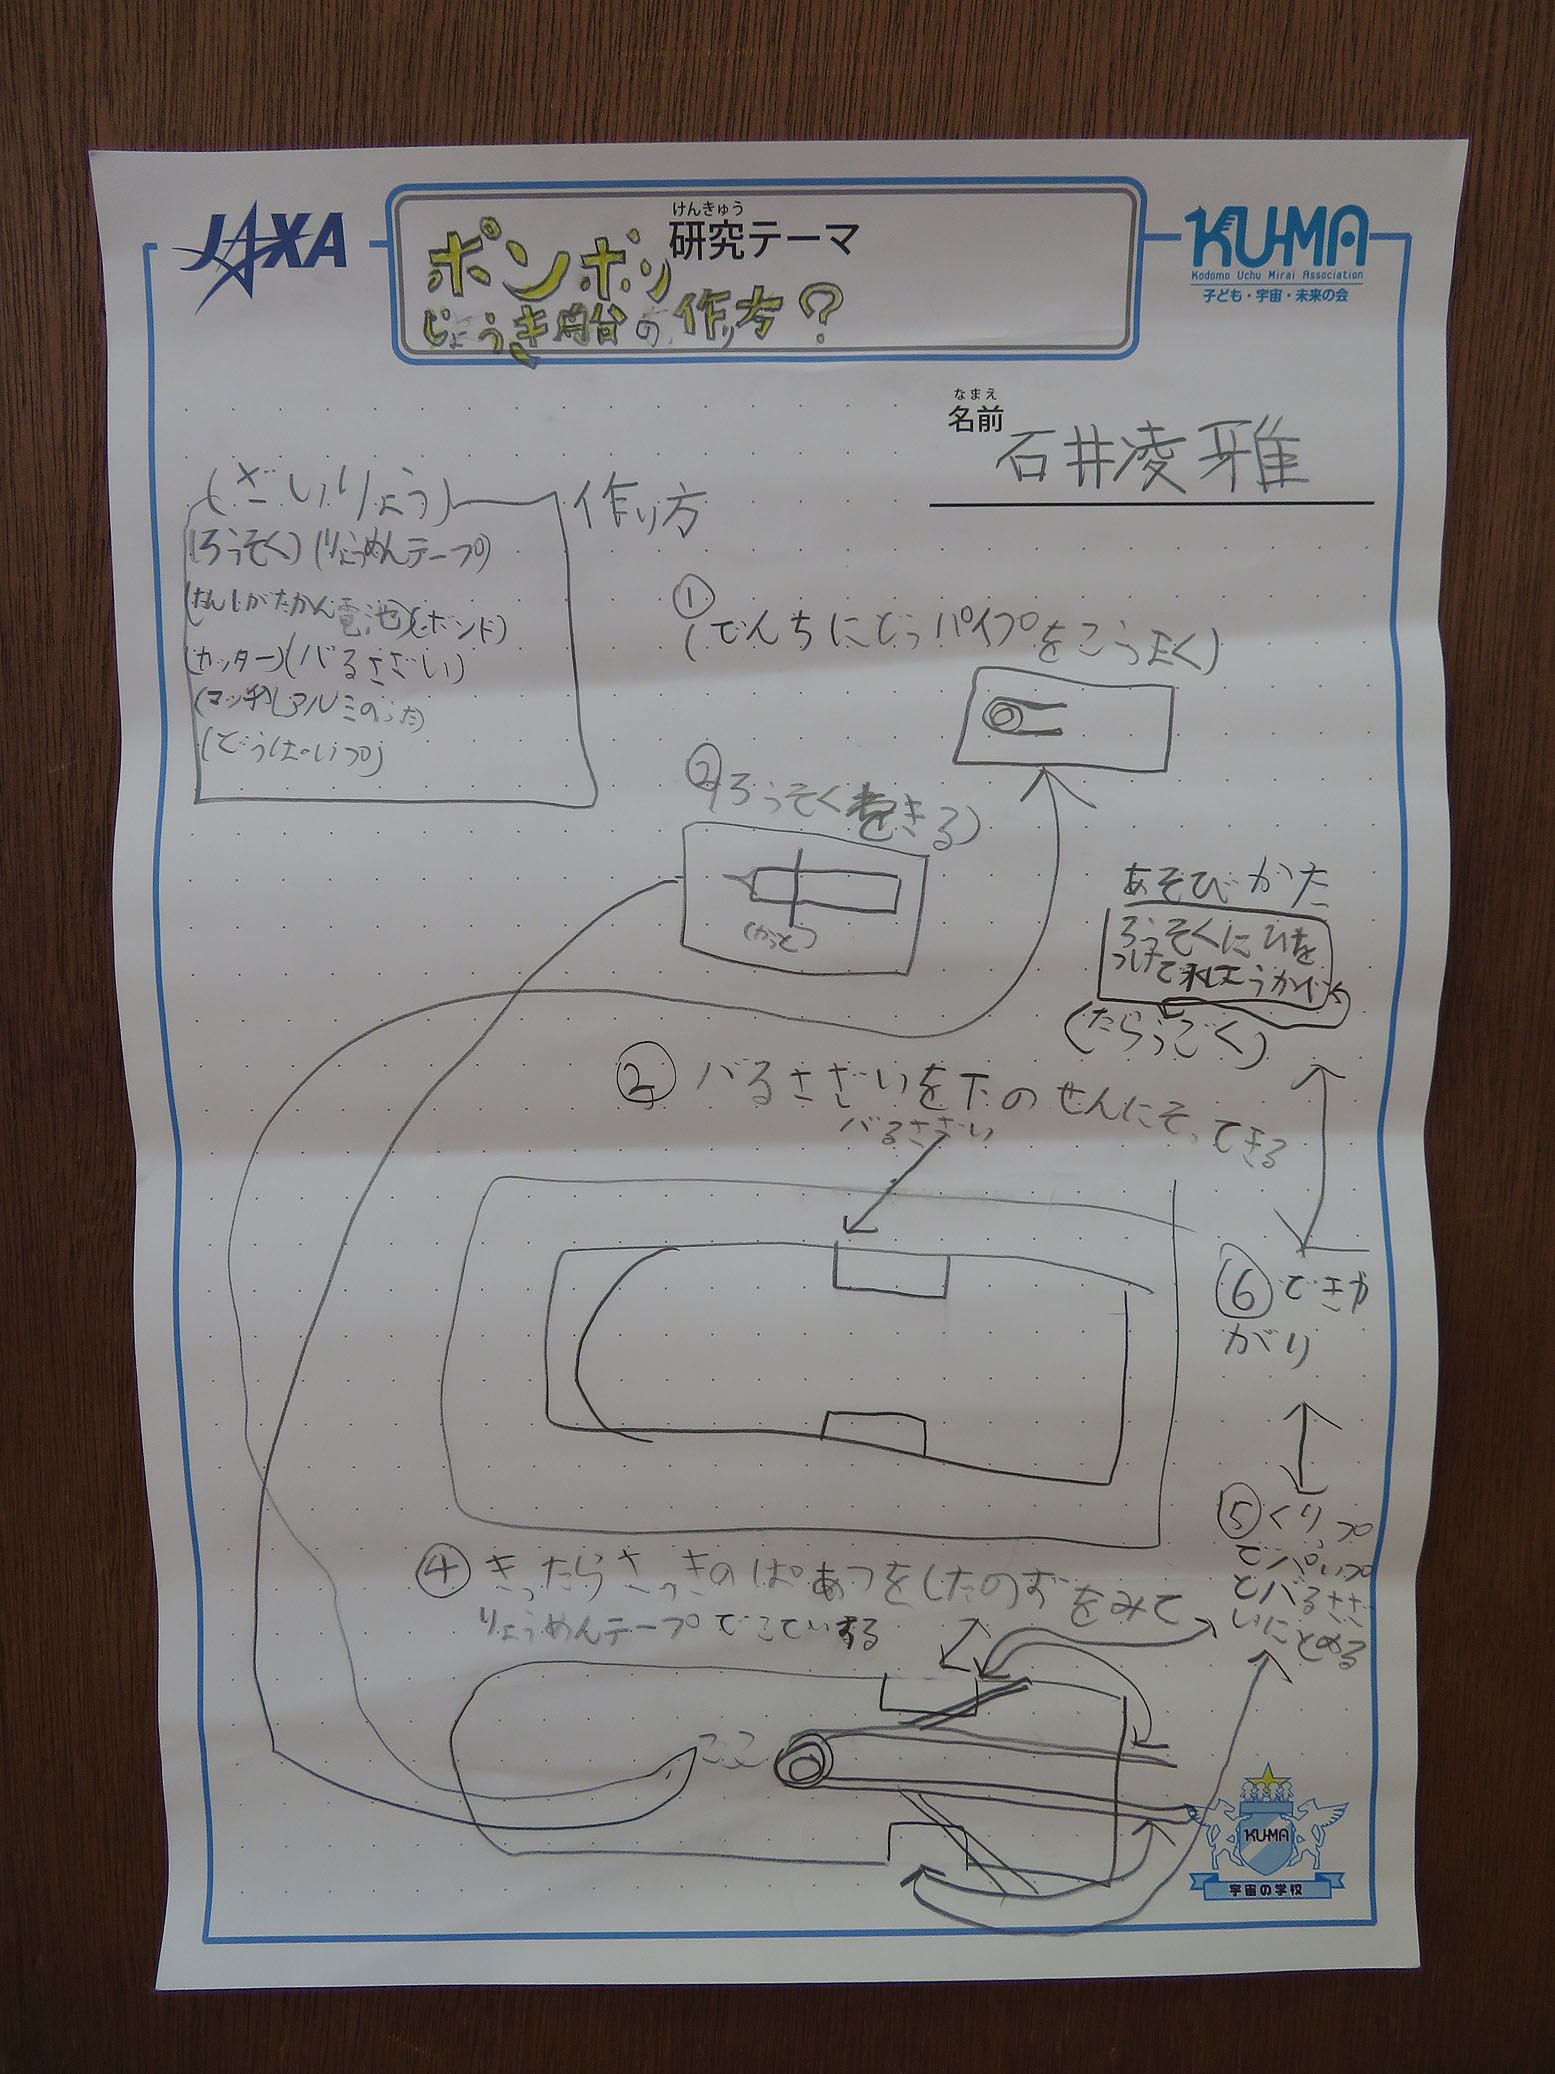 JAXA
けんきゅう
研究テーマ
ポンポン
じょうき船の作り方?
KUMA
Kodomo Uchu Mirai Association
子ども・宇宙・未来の会
なまえ
名前
石井凌雅
(ざいりょう)
(ろうそく)(りょうめんテープ)
(たんしがたかん電池)(ボンド)
(カッター)(バるさざい)
(マッチ)(アルミのふた)
(どうぱいプ)
作り方
①
(でんちにどうパイプを
②ろうそくをきる)
(かっと)
あそびかた
ろうそくにひを
つけて
(たらうごく)
② バるさざいを下のせんにそってきる
バるさざい
④ きったらさっきのぱあつをしたのずをみて
りょうめんテープでこていする
ここ
⑤ くりっプ
でパいプ
とバるさざ
いにとめる
⑥ できが
がり
KUMA
宇宙の学校